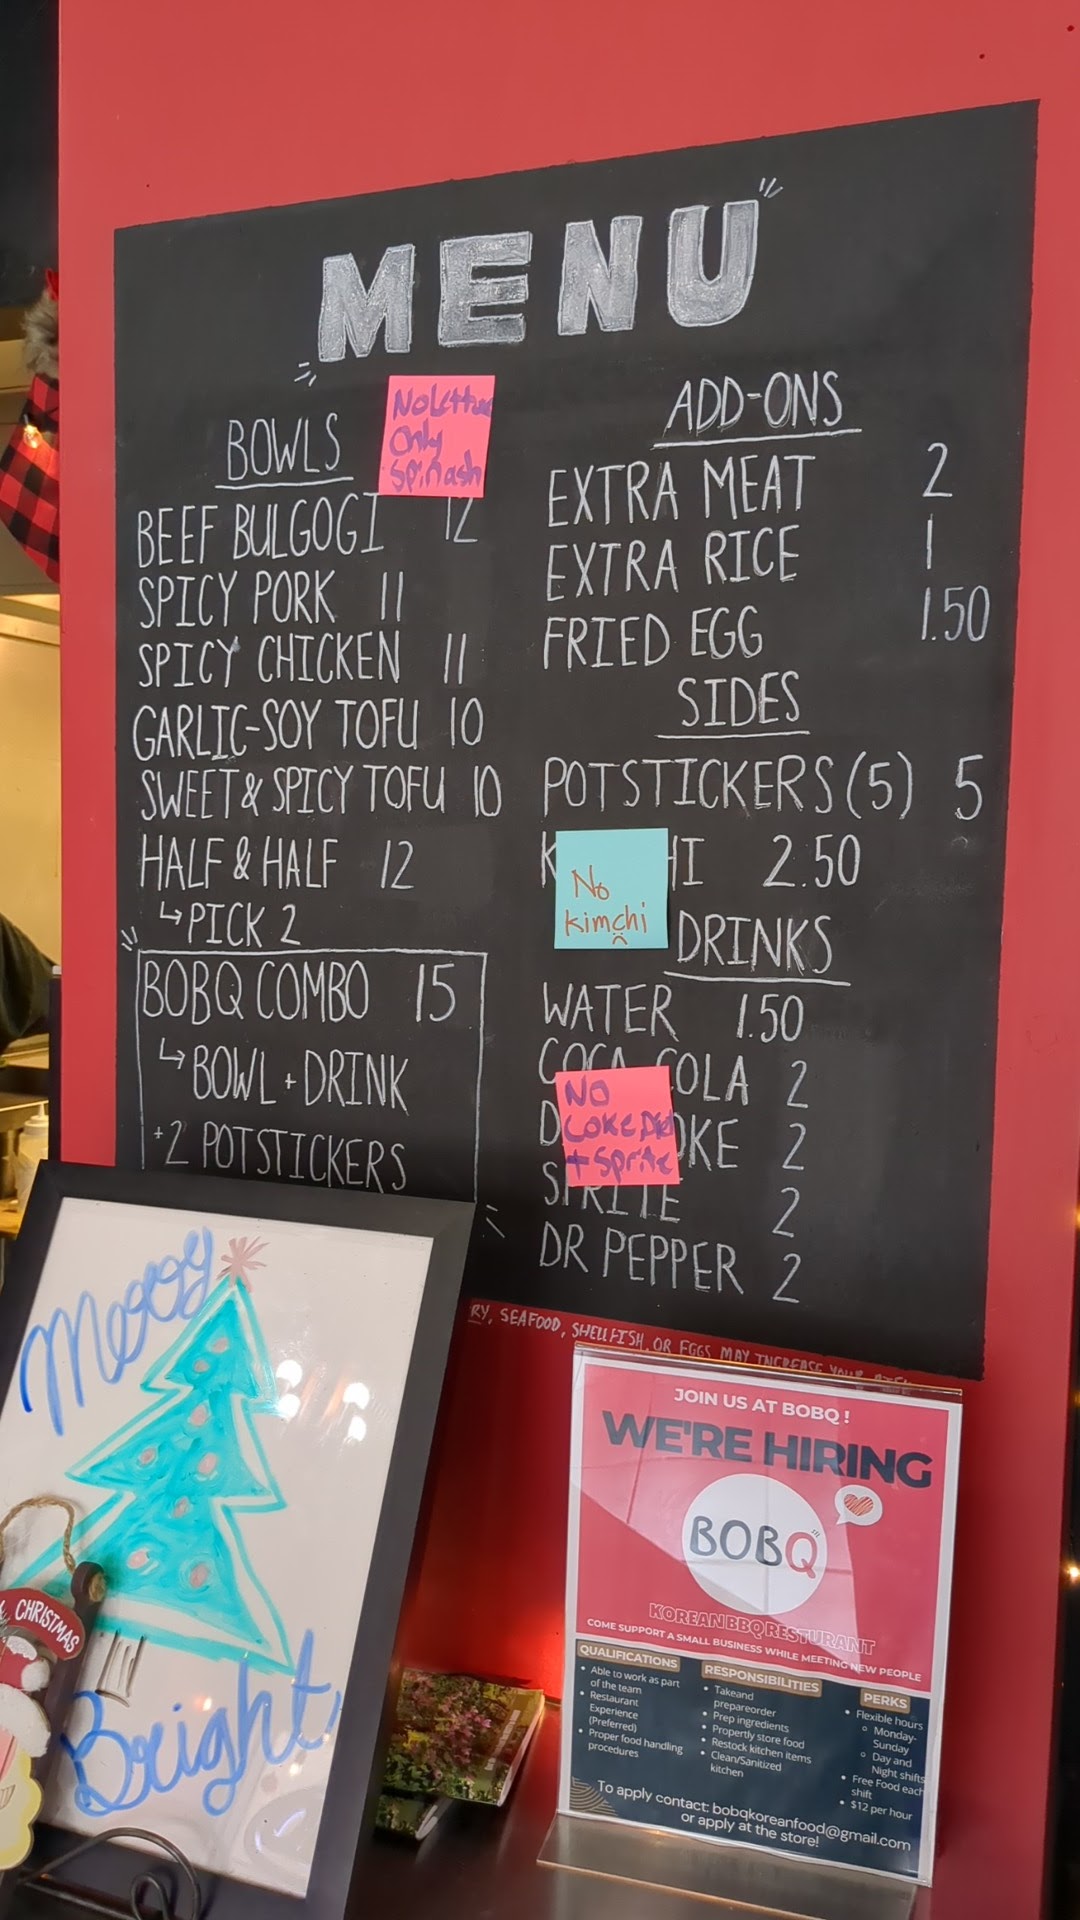 MENU
No Lettuce
Only
Spinash
BOWLS
BEEF BULGOGI 12
SPICY PORK 11
SPICY CHICKEN 11
GARLIC-SOY TOFU 10
SWEET & SPICY TOFU 10
HALF & HALF 12
↳ PICK 2
BOBQ COMBO 15
↳ BOWL + DRINK
+2 POTSTICKERS
ADD-ONS
EXTRA MEAT 2
EXTRA RICE 1
FRIED EGG 1.50
SIDES
POTSTICKERS (5) 5
K HI 2.50
No
kimchi
DRINKS
WATER 1.50
COCA COLA 2
D OKE 2
SPRITE 2
DR PEPPER 2
NO
COKE Diet
+ Sprite
RY, SEAFOOD, SHELLFISH, OR EGGS MAY INCREASE YOUR
Merry
Bright
CHRISTMAS
JOIN US AT BOBQ !
WE'RE HIRING
BOBQ
KOREAN BBQ RESTURANT
COME SUPPORT A SMALL BUSINESS WHILE MEETING NEW PEOPLE
QUALIFICATIONS
• Able to work as part
of the team
• Restaurant
Experience
(Preferred)
• Proper food handling
procedures
RESPONSIBILITIES
• Takeand
prepareorder
• Prep ingredients
• Propertly store food
• Restock kitchen items
• Clean/Sanitized
kitchen
PERKS
• Flexible hours
o Monday-
Sunday
o Day and
Night shifts
• Free Food each
shift
• $12 per hour
To apply contact: bobqkoreanfood@gmail.com
or apply at the store!